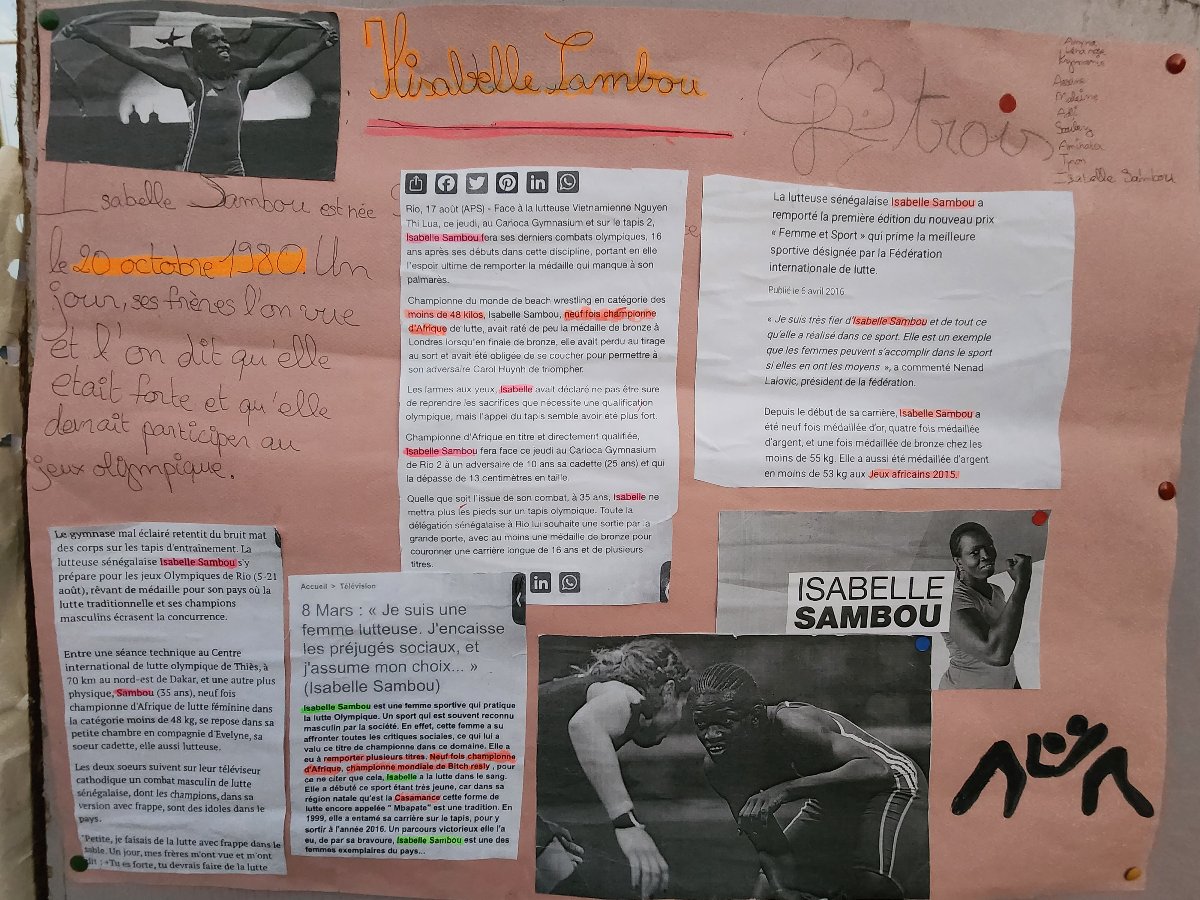 Hisabelle Sambou
trois
Amina
Assane
Adi
Aminata
Isabelle Sambou
Isabelle Sambou est née
le 20 octobre 1980. Un
jour, ses frères l'on vue
et l'on dit qu'elle
etait forte et qu'elle
devrait participer au
jeux olympique.
Rio, 17 août (APS) - Face à la lutteuse Vietnamienne Nguyen
Thi Lua, ce jeudi, au Carioca Gymnasium et sur le tapis 2,
Isabelle Sambou fera ses derniers combats olympiques, 16
ans après ses débuts dans cette discipline, portant en elle
l'espoir ultime de remporter la médaille qui manque à son
palmarès.
Championne du monde de beach wrestling en catégorie des
moins de 48 kilos, Isabelle Sambou, neuf fois championne
d'Afrique de lutte, avait raté de peu la médaille de bronze à
Londres lorsqu'en finale de bronze, elle avait perdu au tirage
au sort et avait été obligée de se coucher pour permettre à
son adversaire Carol Huynh de triompher.
Les larmes aux yeux, Isabelle avait déclaré ne pas être sure
de reprendre les sacrifices que nécessite une qualification
olympique, mais l'appel du tapis semble avoir été plus fort.
Championne d'Afrique en titre et directement qualifiée,
Isabelle Sambou fera face ce jeudi au Carioca Gymnasium
de Rio 2 à un adversaire de 10 ans sa cadette (25 ans) et qui
la dépasse de 13 centimètres en taille.
Quelle que soit l'issue de son combat, à 35 ans, Isabelle ne
mettra plus les pieds sur un tapis olympique. Toute la
délégation sénégalaise à Rio lui souhaite une sortie par la
grande porte, avec au moins une médaille de bronze pour
couronner une carrière longue de 16 ans et de plusieurs
titres.
La lutteuse sénégalaise Isabelle Sambou a
remporté la première édition du nouveau prix
« Femme et Sport » qui prime la meilleure
sportive désignée par la Fédération
internationale de lutte.
Publié le 5 avril 2016
« Je suis très fier d'Isabelle Sambou et de tout ce
qu'elle a réalisé dans ce sport. Elle est un exemple
que les femmes peuvent s'accomplir dans le sport
si elles en ont les moyens », a commenté Nenad
Lalovic, président de la fédération.
Depuis le début de sa carrière, Isabelle Sambou a
été neuf fois médaillée d'or, quatre fois médaillée
d'argent, et une fois médaillée de bronze chez les
moins de 55 kg. Elle a aussi été médaillée d'argent
en moins de 53 kg aux Jeux africains 2015.
Le gymnase mal éclairé retentit du bruit mat
des corps sur les tapis d'entraînement. La
lutteuse sénégalaise Isabelle Sambou s'y
prépare pour les jeux Olympiques de Rio (5-21
août), rêvant de médaille pour son pays où la
lutte traditionnelle et ses champions
masculins écrasent la concurrence.
Entre une séance technique au Centre
international de lutte olympique de Thiès, à
70 km au nord-est de Dakar, et une autre plus
physique, Sambou (35 ans), neuf fois
championne d'Afrique de lutte féminine dans
la catégorie moins de 48 kg, se repose dans sa
petite chambre en compagnie d'Evelyne, sa
soeur cadette, elle aussi lutteuse.
Les deux soeurs suivent sur leur téléviseur
cathodique un combat masculin de lutte
sénégalaise, dont les champions, dans sa
version avec frappe, sont des idoles dans le
pays.
"Petite, je faisais de la lutte avec frappe dans le
sable. Un jour, mes frères m'ont vue et m'ont
dit : «Tu es forte, tu devrais faire de la lutte
Accueil > Télévision
8 Mars : « Je suis une
femme lutteuse. J'encaisse
les préjugés sociaux, et
j'assume mon choix... »
(Isabelle Sambou)
Isabelle Sambou est une femme sportive qui pratique
la lutte Olympique. Un sport qui est souvent reconnu
masculin par la société. En effet, cette femme a su
affronter toutes les critiques sociales, ce qui lui a
valu ce titre de championne dans ce domaine. Elle a
eu à remporter plusieurs titres. Neuf fois championne
d'Afrique, championne mondiale de Bitch resly , pour
ce ne citer que cela, Isabelle a la lutte dans le sang.
Elle a débuté ce sport étant très jeune, car dans sa
région natale qu'est la Casamance cette forme de
lutte encore appelée " Mbapate" est une tradition. En
1999, elle a entamé sa carrière sur le tapis, pour y
sortir à l'année 2016. Un parcours victorieux elle l'a
eu, de par sa bravoure, Isabelle Sambou est une des
femmes exemplaires du pays...
ISABELLE
SAMBOU